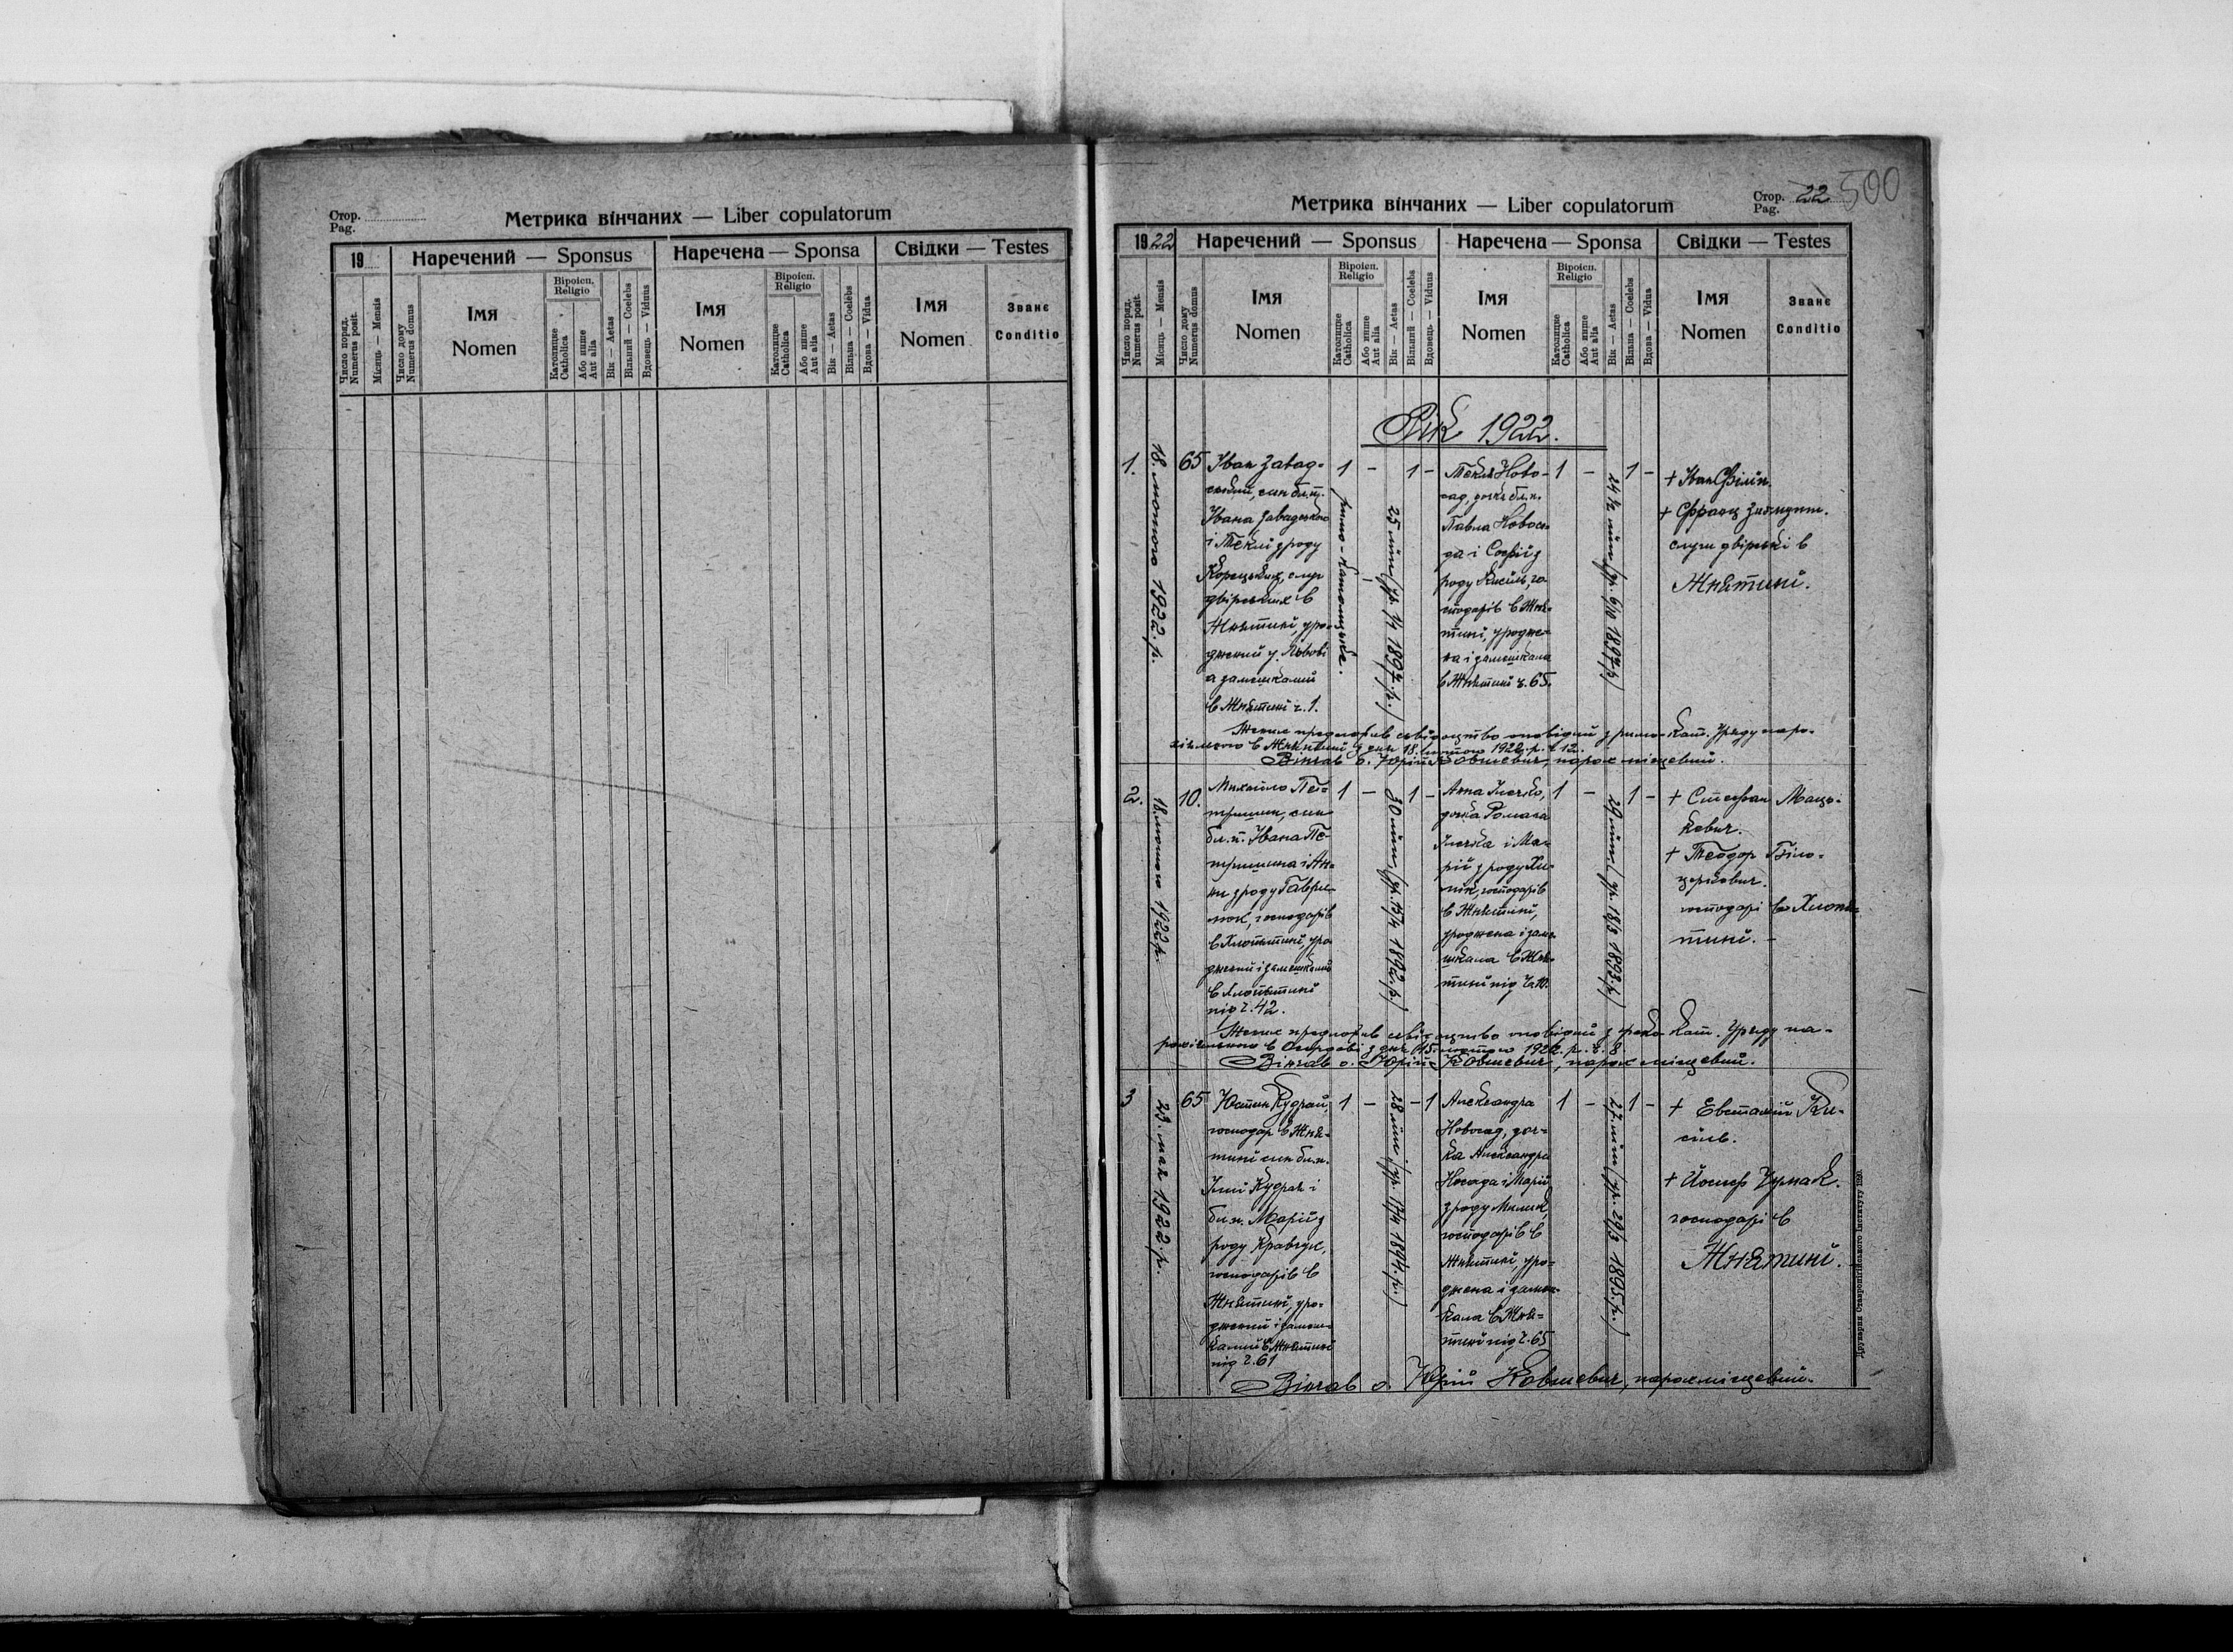 Стор.
Pag.
Метрика вінчаних — Liber copulatorum
19
Наречений — Sponsus
Наречена — Sponsa
Свідки — Testes
Число поряд.
Numerus posit.
Місяць — Mensis
Число дому
Numerus domus
Імя
Nomen
Віроісп.
Religio
Католицке
Catholica
Або инше
Aut alia
Вік — Aetas
Вільний — Coelebs
Вдовець — Viduus
Імя
Nomen
Віроісп.
Religio
Католицке
Catholica
Або инше
Aut alia
Вік — Aetas
Вільна — Coelebs
Вдова — Vidua
Імя
Nomen
Званє
Conditio
Метрика вінчаних — Liber copulatorum
Стор.
Pag.
22
500
1922
Наречений — Sponsus
Наречена — Sponsa
Свідки — Testes
Число поряд.
Numerus posit.
Місяць — Mensis
Число дому
Numerus domus
Імя
Nomen
Віроісп.
Religio
Католицке
Catholica
Або инше
Aut alia
Вік — Aetas
Вільний — Coelebs
Вдовець — Viduus
Імя
Nomen
Віроісп.
Religio
Католицке
Catholica
Або инше
Aut alia
Вік — Aetas
Вільна — Coelebs
Вдова — Vidua
Імя
Nomen
Званє
Conditio
Рік 1922.
1.
18. лютого 1922. р.
65
Іван Завад-
ський, син бл.п.
Івана Завадського
і Теклї з роду
двірських в
Жнятинї, уро-
джений у Львові
а замешкалий
в Жнятинї ч. 1.
1 —
римо-католицьке.
25 літ (ур. 1/1 1897. р.)
1 —
Текля Ново-
сад, дочка бл.п.
Павла Новоса-
да і Софії з
роду Кисїль, го-
сподарів в Жня-
тинї, уродже-
на і замешкала
в Жнятинї ч. 65.
1 —
1 —
+ Іван
+ Франц
слуги двірські в
Жнятинї.
Жених предложив свідоцтво оповідий з римо-кат. Уряду паро-
хіяльного в Жнятинї з дня 18. лютого 1922. р. ч. 12.
Вінчав о. Юрій Ковшевич, парох місцевий.
2.
18. лютого 1922 р.
10.
Михайло Пе-
тришин, син
бл.п. Івана Пе-
тришина і Ан-
ни з роду Гаври-
люк, господарів
в Хлопятинї, уро-
джений і замешкалий
в Хлопятинї
під ч. 42.
1 —
1 —
Анна
дочка Романа
і Ма-
рії з роду
господарів
в Жнятинї,
уроджена і заме-
шкала в Жня-
тинї під ч. 10.
1 —
29 літ (ур. 18/3 1893. р.)
1 —
+ Стефан Маць-
кевич.
+ Теодор Біло-
господарі в Хлопя-
тинї. —
Жених предложив свідоцтво оповідий з греко-кат. Уряду па-
рохіяльного в з дня 15. лютого 1922. р. ч. 8
Вінчав о. Юрій Ковшевич, парох місцевий.
3
23. мая 1922 р.
65
Юстин Кудрай,
господар в Жня-
тинї син бл.п.
Ілїї і
бл.п. Марії з
роду Кравчук,
господарів в
Жнятинї, уро-
джений і замеш-
калий в Жнятинї
під ч. 61
1 —
28 літ (ур. 17/4 1894. р.)
— 1
Александра
Новосад, доч-
ка Александра
і Марії
з роду
господарів в
Жнятинї, уро-
джена і замеш-
кала в Жня-
тинї під ч. 65
1 —
27. літ (ур. 29/3 1895. р.)
1 —
+ Евстахій Ки-
сїль.
+ Йосиф Чумак.
господарі в
Жнятинї.
Вінчав о. Юрій Ковшевич, парох місцевий.
Друкарня Ставропігійського Інституту 1920.